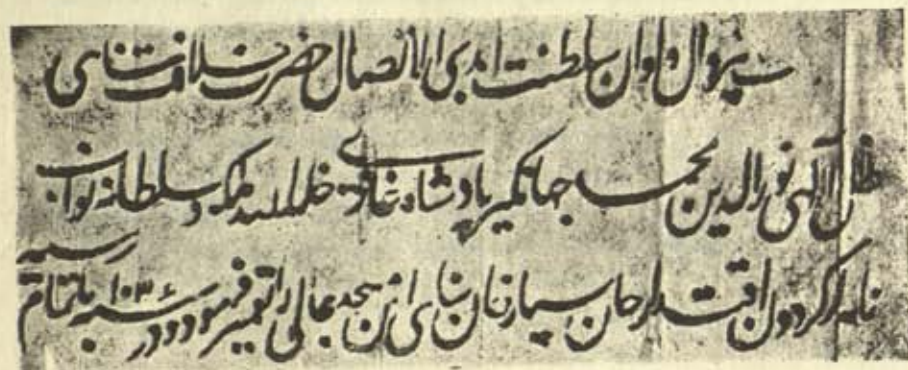 بیزوال و اوان سلطنت ابدی الاتصال حضرت خلافت پناهی
ظل الهی نورالدین محمد جهانگیر پادشاه غازی خلد الله ملکه و سلطانه نواب
نامدار گردون اقتدار جان سپار خان بنای این مسجد عالی را تعمیر فرمود و در سنه ۱۰۳۶ باتمام رسید